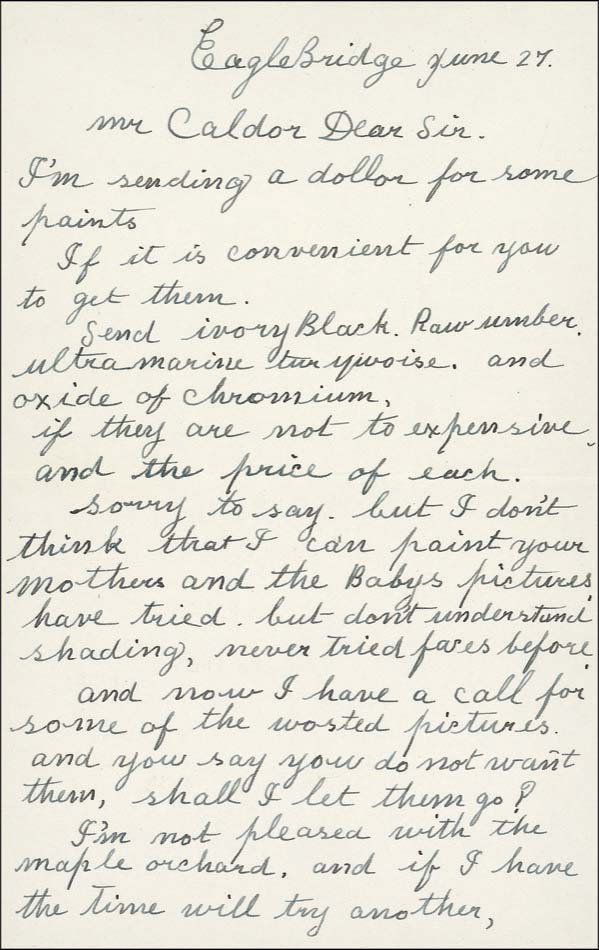 EagleBridge June 27.
mr Caldor Dear Sir.
I'm sending a dollor for some
paints
If it is convenient for you
to get them.
Send ivory Black. Raw umber.
ultramarine turywoise. and
oxide of chromium,
if they are not to expensive.
and the price of each.
sorry to say. but I don't
think that I can paint your
mothers and the Babys pictures,
have tried. but don't understand
shading, never tried faces before
and now I have a call for
some of the wosted pictures.
and you say you do not want
them, shall I let them go?
I'm not pleased with the
maple orchard. and if I have
the time will try another,